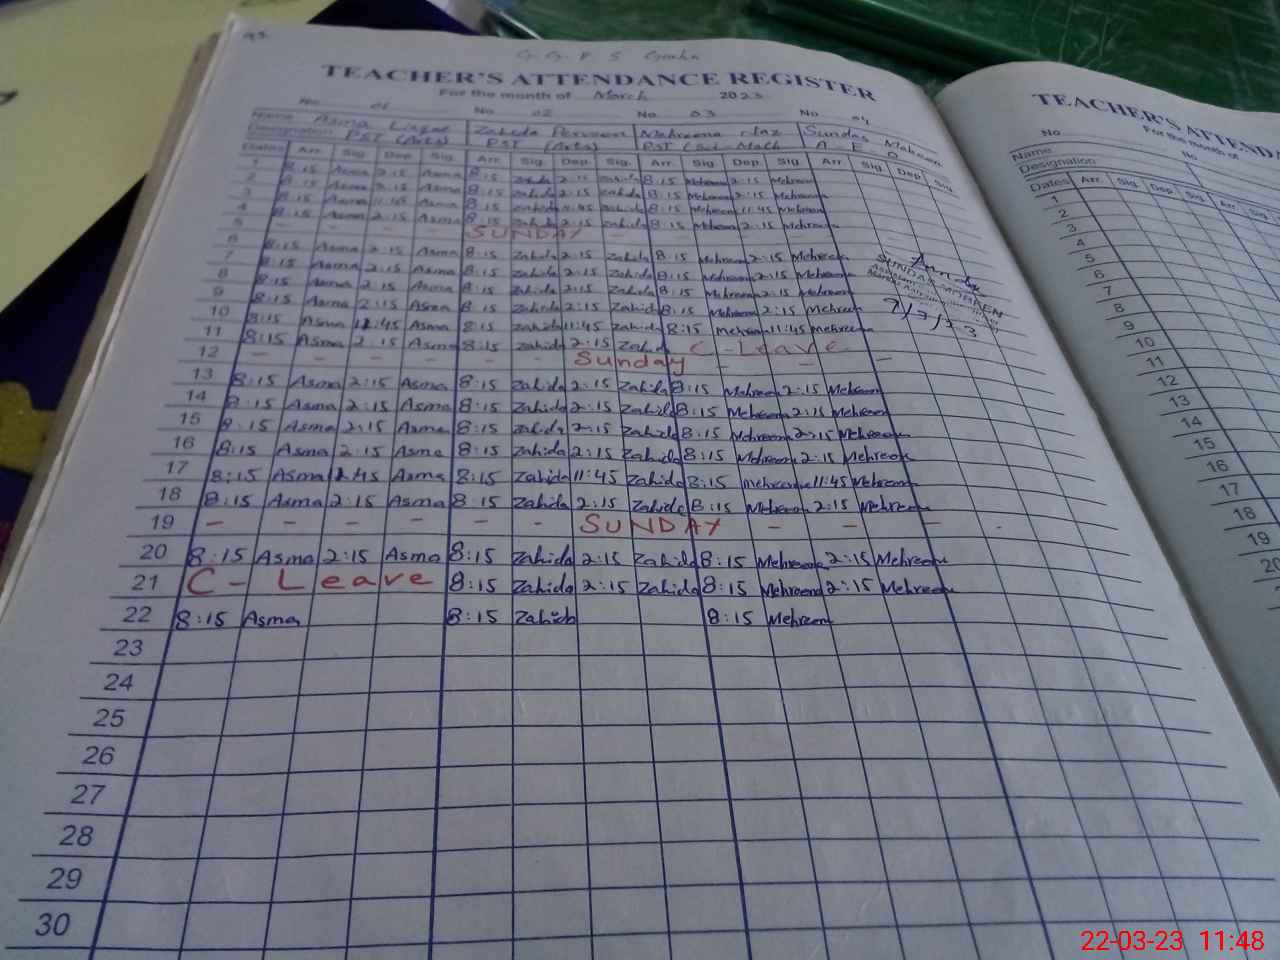 G. G. P. S
TEACHER'S ATTENDANCE REGISTER
For the month of March 2023
No. 01 No. 02 No. 03 No. 04
Name Asma Zahida Perveen Mehreena Sundas Mahreen
Designation PST (Arts) PST (Arts) PST (Sci-Math A E O
Dates Arr. Sig. Dep. Sig. Arr. Sig. Dep. Sig. Arr. Sig. Dep. Sig. Arr. Sig. Dep. Sig.
1 8:15 Asma 2:15 Asma 8:15 Zahida 2:15 Zahida 8:15 Mehreen 2:15 Mehreen
2 8:15 Asma 2:15 Asma 8:15 Zahida 2:15 Zahida 8:15 Mehreen 2:15 Mehreen
3 8:15 Asma Asma 8:15 Zahida 11:45 Zahida 8:15 Mehreen 11:45 Mehreen
4 8:15 Asma 2:15 Asma 8:15 Zahida 2:15 Zahida 8:15 Mehreen 2:15 Mehreen
5 - - - - SUNDAY - -
6 8:15 Asma 2:15 Asma 8:15 Zahida 2:15 Zahida 8:15 Mehreen 2:15 Mehreen
7 8:15 Asma 2:15 Asma 8:15 Zahida 2:15 Zahida 8:15 Mehreen 2:15 Mehreen
8 8:15 Asma 2:15 Asma 8:15 Zahida 2:15 Zahida 8:15 Mehreen 2:15 Mehreen
9 8:15 Asma 2:15 Asma 8:15 Zahida 2:15 Zahida 8:15 Mehreen 2:15 Mehreen
10 8:15 Asma 11:45 Asma 8:15 Zahida 11:45 Zahida 8:15 Mehreen 11:45 Mehreen
11 8:15 Asma 2:15 Asma 8:15 Zahida 2:15 Zahida C - Leave
12 - - - - - - Sunday - - -
13 8:15 Asma 2:15 Asma 8:15 Zahida 2:15 Zahida 8:15 Mehreen 2:15 Mehreen
14 8:15 Asma 2:15 Asma 8:15 Zahida 2:15 Zahida 8:15 Mehreen 2:15 Mehreen
15 8:15 Asma 2:15 Asma 8:15 Zahida 2:15 Zahida 8:15 Mehreen 2:15 Mehreen
16 8:15 Asma 2:15 Asma 8:15 Zahida 2:15 Zahida 8:15 Mehreen 2:15 Mehreen
17 8:15 Asma 11:45 Asma 8:15 Zahida 11:45 Zahida 8:15 mehreen 11:45 Mehreen
18 8:15 Asma 2:15 Asma 8:15 Zahida 2:15 Zahida 8:15 Mehreen 2:15 Mehreen
19 - - - - - - SUNDAY - - - -
20 8:15 Asma 2:15 Asma 8:15 Zahida 2:15 Zahida 8:15 Mehreen 2:15 Mehreen
21 C - Leave 8:15 Zahida 2:15 Zahida 8:15 Mehreen 2:15 Mehreen
22 8:15 Asma 8:15 Zahida 8:15 Mehreen
23
24
25
26
27
28
29
30
SUNDAS MOHREEN
TEACHER'S ATTENDA
No. No.
For the month of
Name
Designation
Dates Arr. Sig. Dep. Sig. Arr. Sig.
1
2
3
4
5
6
7
8
9
10
11
12
13
14
15
16
17
18
19
20
22-03-23 11:48